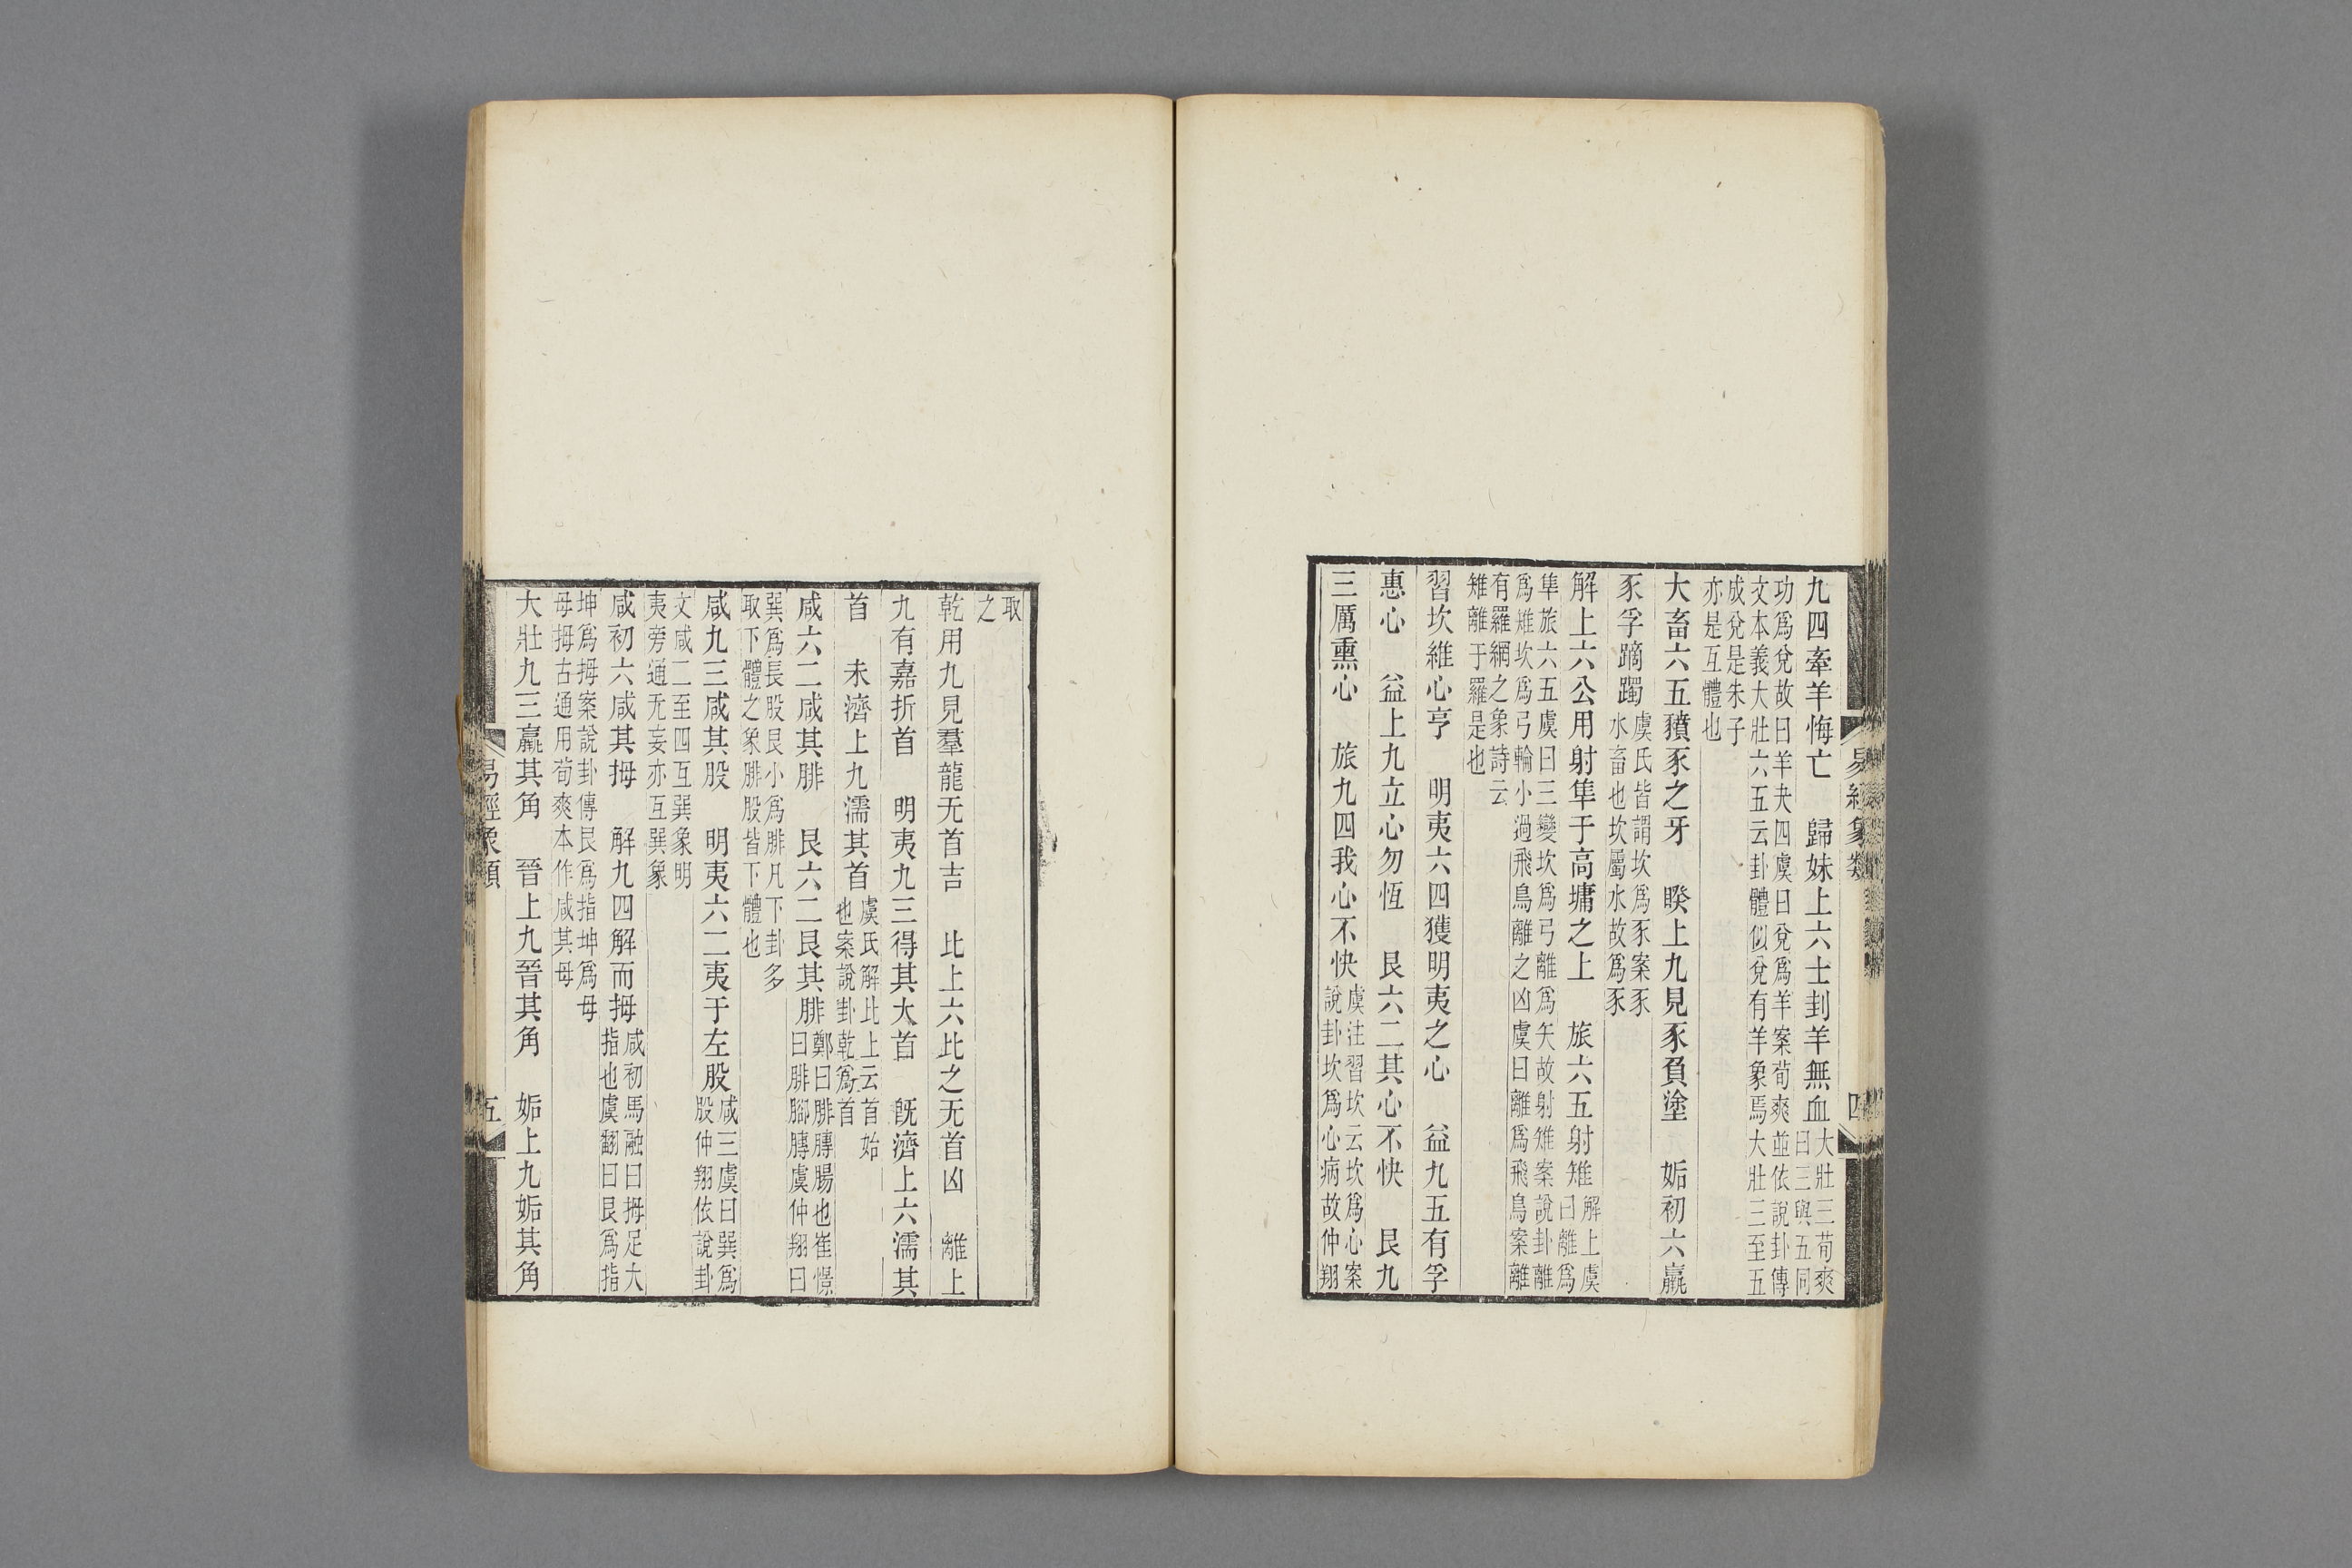 九四牽羊悔亡　歸妹上六士刲羊無血大壯三荀爽曰三與五同
功爲兌故曰羊夬四虞曰兌爲羊案荀爽並依說卦傳文本義大壯六五云卦體似兌有羊象焉大壯三至五
成兌是朱子亦是互體也
大畜六五豶豕之牙　睽上九見豕負塗　姤初六羸
豕孚蹢躅虞氏皆謂坎爲豕案豕水畜也坎屬水故爲豕
解上六公用射隼于高墉之上　旅六五射雉解上虞曰離爲
隼旅六五虞曰三變坎爲弓離爲矢故射雉案說卦離爲雉坎爲弓輪小過飛鳥離之凶虞曰離爲飛鳥案離
有羅網之象詩云雉離于羅是也
習坎維心亨　明夷六四獲明夷之心　益九五有孚
惠心　益上九立心勿恆　艮六二其心不快　艮九
三厲熏心　旅九四我心不快虞注習坎云坎爲心案說卦坎爲心病故仲翔
易經象類
四
取之
乾用九見羣龍无首吉　比上六比之无首凶　離上
九有嘉折首　明夷九三得其大首　旣濟上六濡其
首　未濟上九濡其首虞氏解比上云首始也案說卦乾爲首
咸六二咸其腓　艮六二艮其腓鄭曰腓膞腸也崔憬曰腓腳膞虞仲翔曰
巽爲長股艮小爲腓凡下卦多取下體之象腓股皆下體也
咸九三咸其股　明夷六二夷于左股咸三虞曰巽爲股仲翔依說卦
文咸二至四互巽象明夷旁通无妄亦互巽象
咸初六咸其拇　解九四解而拇咸初馬融曰拇足大指也虞翻曰艮爲指
坤爲拇案說卦傳艮爲指坤爲母母拇古通用荀爽本作咸其母
大壯九三羸其角　晉上九晉其角　姤上九姤其角
易經象類
五